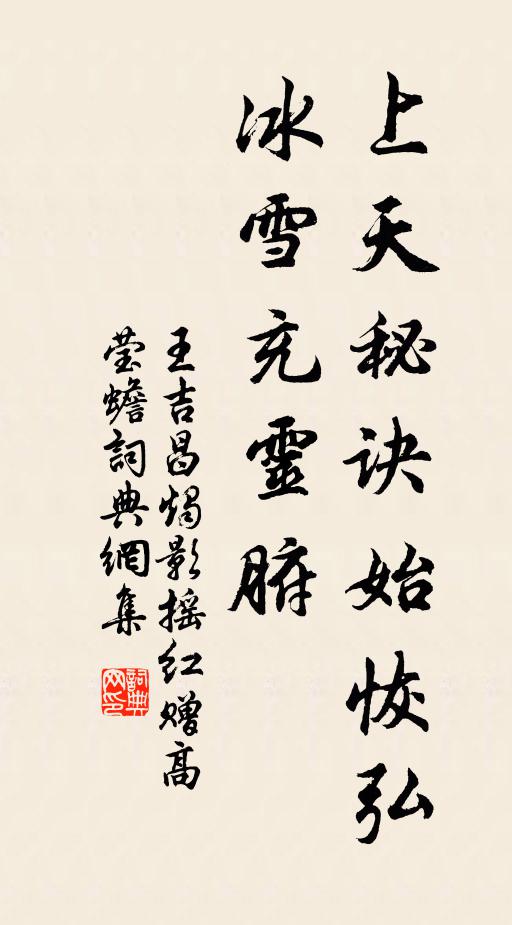 上天秘诀始恢弘
冰雪充靈腑
王吉昌燭影摇红赠高
莹蟾詞典網集
詞典网印